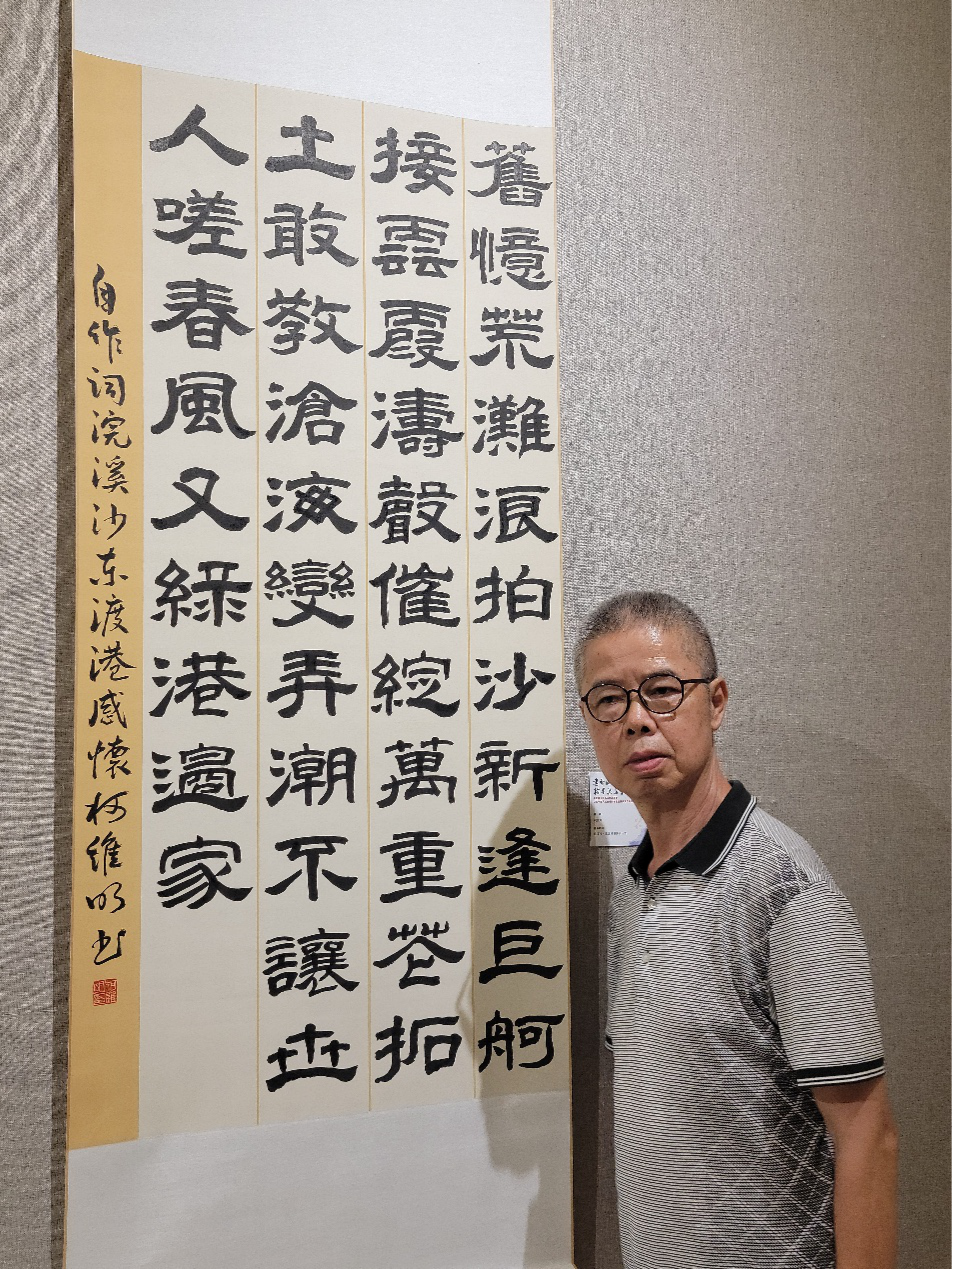 舊憶荒灘浪拍沙新逢巨舸
接雲霞濤聲催綻萬重花拓
土敢教滄海變弄潮不讓世
人嗟春風又綠港邊家
自作词浣溪沙东渡港感懷柯維明书